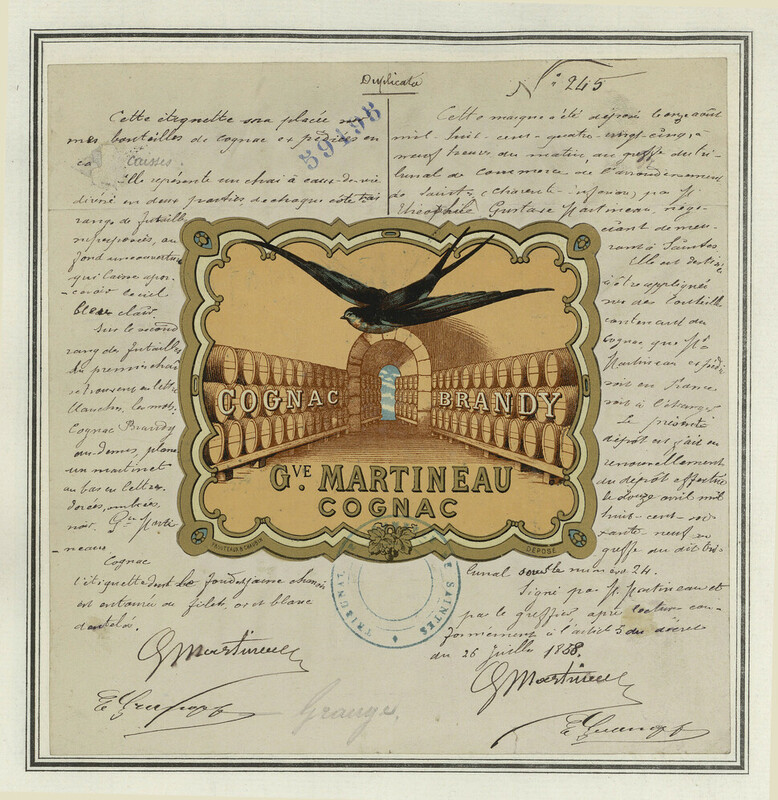 Duplicata
N° 245
59498
Cette étiquette sera placée sur
mes bouteilles de Cognac expédiées en
caisses.
Elle représente un chai à eaux-de-vie
divisé en deux parties de chaque côté trois
rangs de futailles
superposés, au
fond une ouverture
qui laisse aper-
-cevoir le ciel
bleu clair.
Sur le second
rang de futailles
du premier chai
se trouvent en lettres
blanches, les mots,
Cognac Brandy
au-dessus, plane
un martinet
au bas en lettres
dorées, ombrées
noir. Gve Marti
-neau
Cognac
L'étiquette dont le fond est jaune chamois
est entourée de filets, or et blanc
dentelés.
GMartineau
Cette marque a été déposée le onze août
mil-huit-cent-quatre-vingt-cinq, à
neuf heures du matin au greffe du tri-
bunal de Commerce de l'arrondissement
de Saintes (Charente-inférieure) par M.
Théophile Gustave Martineau, négo-
ciant demeu-
rant à Saintes
Elle est destinée
à être appliquée
sur des bouteilles
contenant du
Cognac, que Mr.
Martineau expédie
soit en France
soit à l'étranger
Le présent
dépôt est fait en
renouvellement
du dépôt effectué
le douze avril mil
huit-cent-soi-
xante-neuf au
greffe du dit tri-
bunal sous le numéro 24.
Signé par M. Martineau et
par le greffier après lecture con-
formément à l'article 5 du décret
du 26 Juillet 1858.
GMartineau
COGNAC BRANDY
GVE. MARTINEAU
COGNAC
DÉPOSÉ
TRIBUNAL DE SAINTES
Granges.